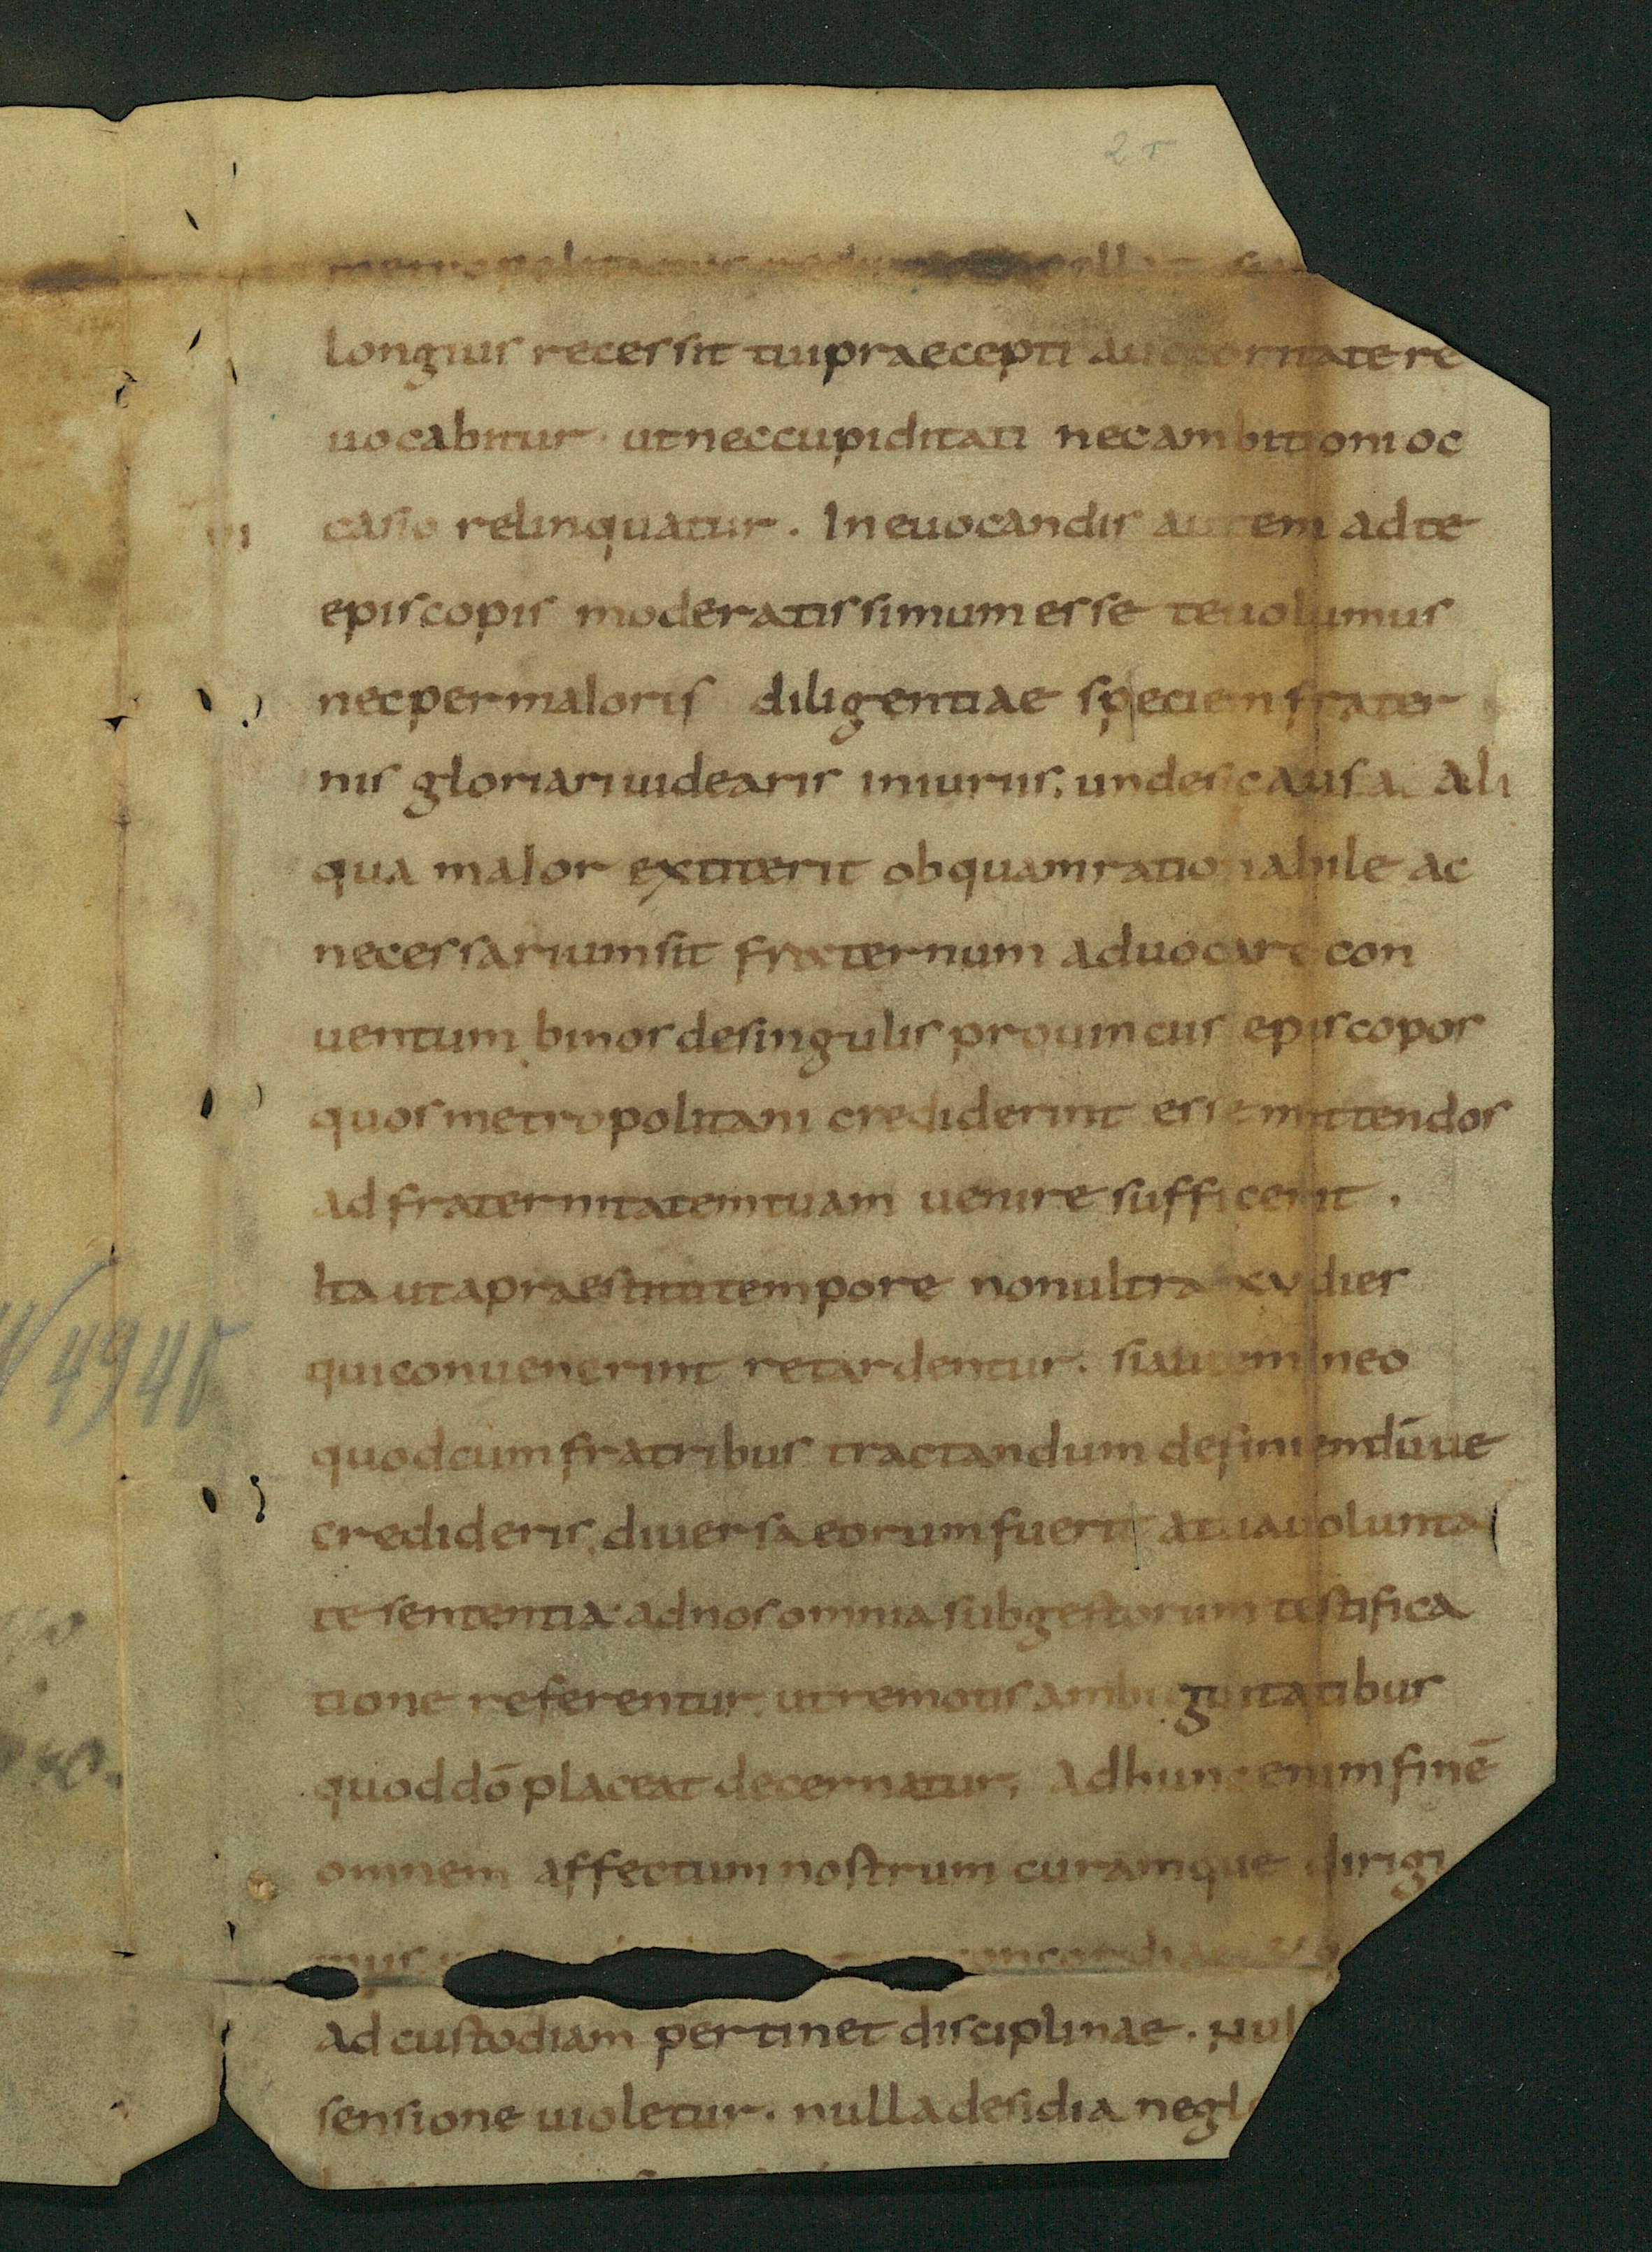 2r
metropolitanus
longius recessit tui praecepti auctoritate re
uocabitur. ut nec cupiditati nec ambitioni oc
casio relinquatur. In euocandis autem ad te
VI
episcopis moderatissimum esse te uolumus
nec per maioris diligentiae speciem frater
nis gloriari uidearis iniuriis. unde si causa ali
qua maior extiterit ob quam rationabile ac
necessarium sit fraternum aduocare con
uentum binos de singulis prouinciis episcopos
quos metropolitani crediderint esse mittendos
ad fraternitatem tuam uenire sufficerit.
Ita ut a praestituto tempore non ultra xv dies
qui conuenerint retardentur. si autem in eo
quod cum fratribus tractandum definiendūue
credideris. diuersa eorum fuerit a tua uolunta
te sententia. ad nos omnia sub gestorum testifica
tione referentur. ut remotis ambiguitatibus
quod dō placeat decernatur. Ad hunc enim finē
omnem affectum nostrum curamque dirigi
mus concordiae
ad custodiam pertinet disciplinae. Nul
sensione uioletur. nulla desidia negle
N 4940